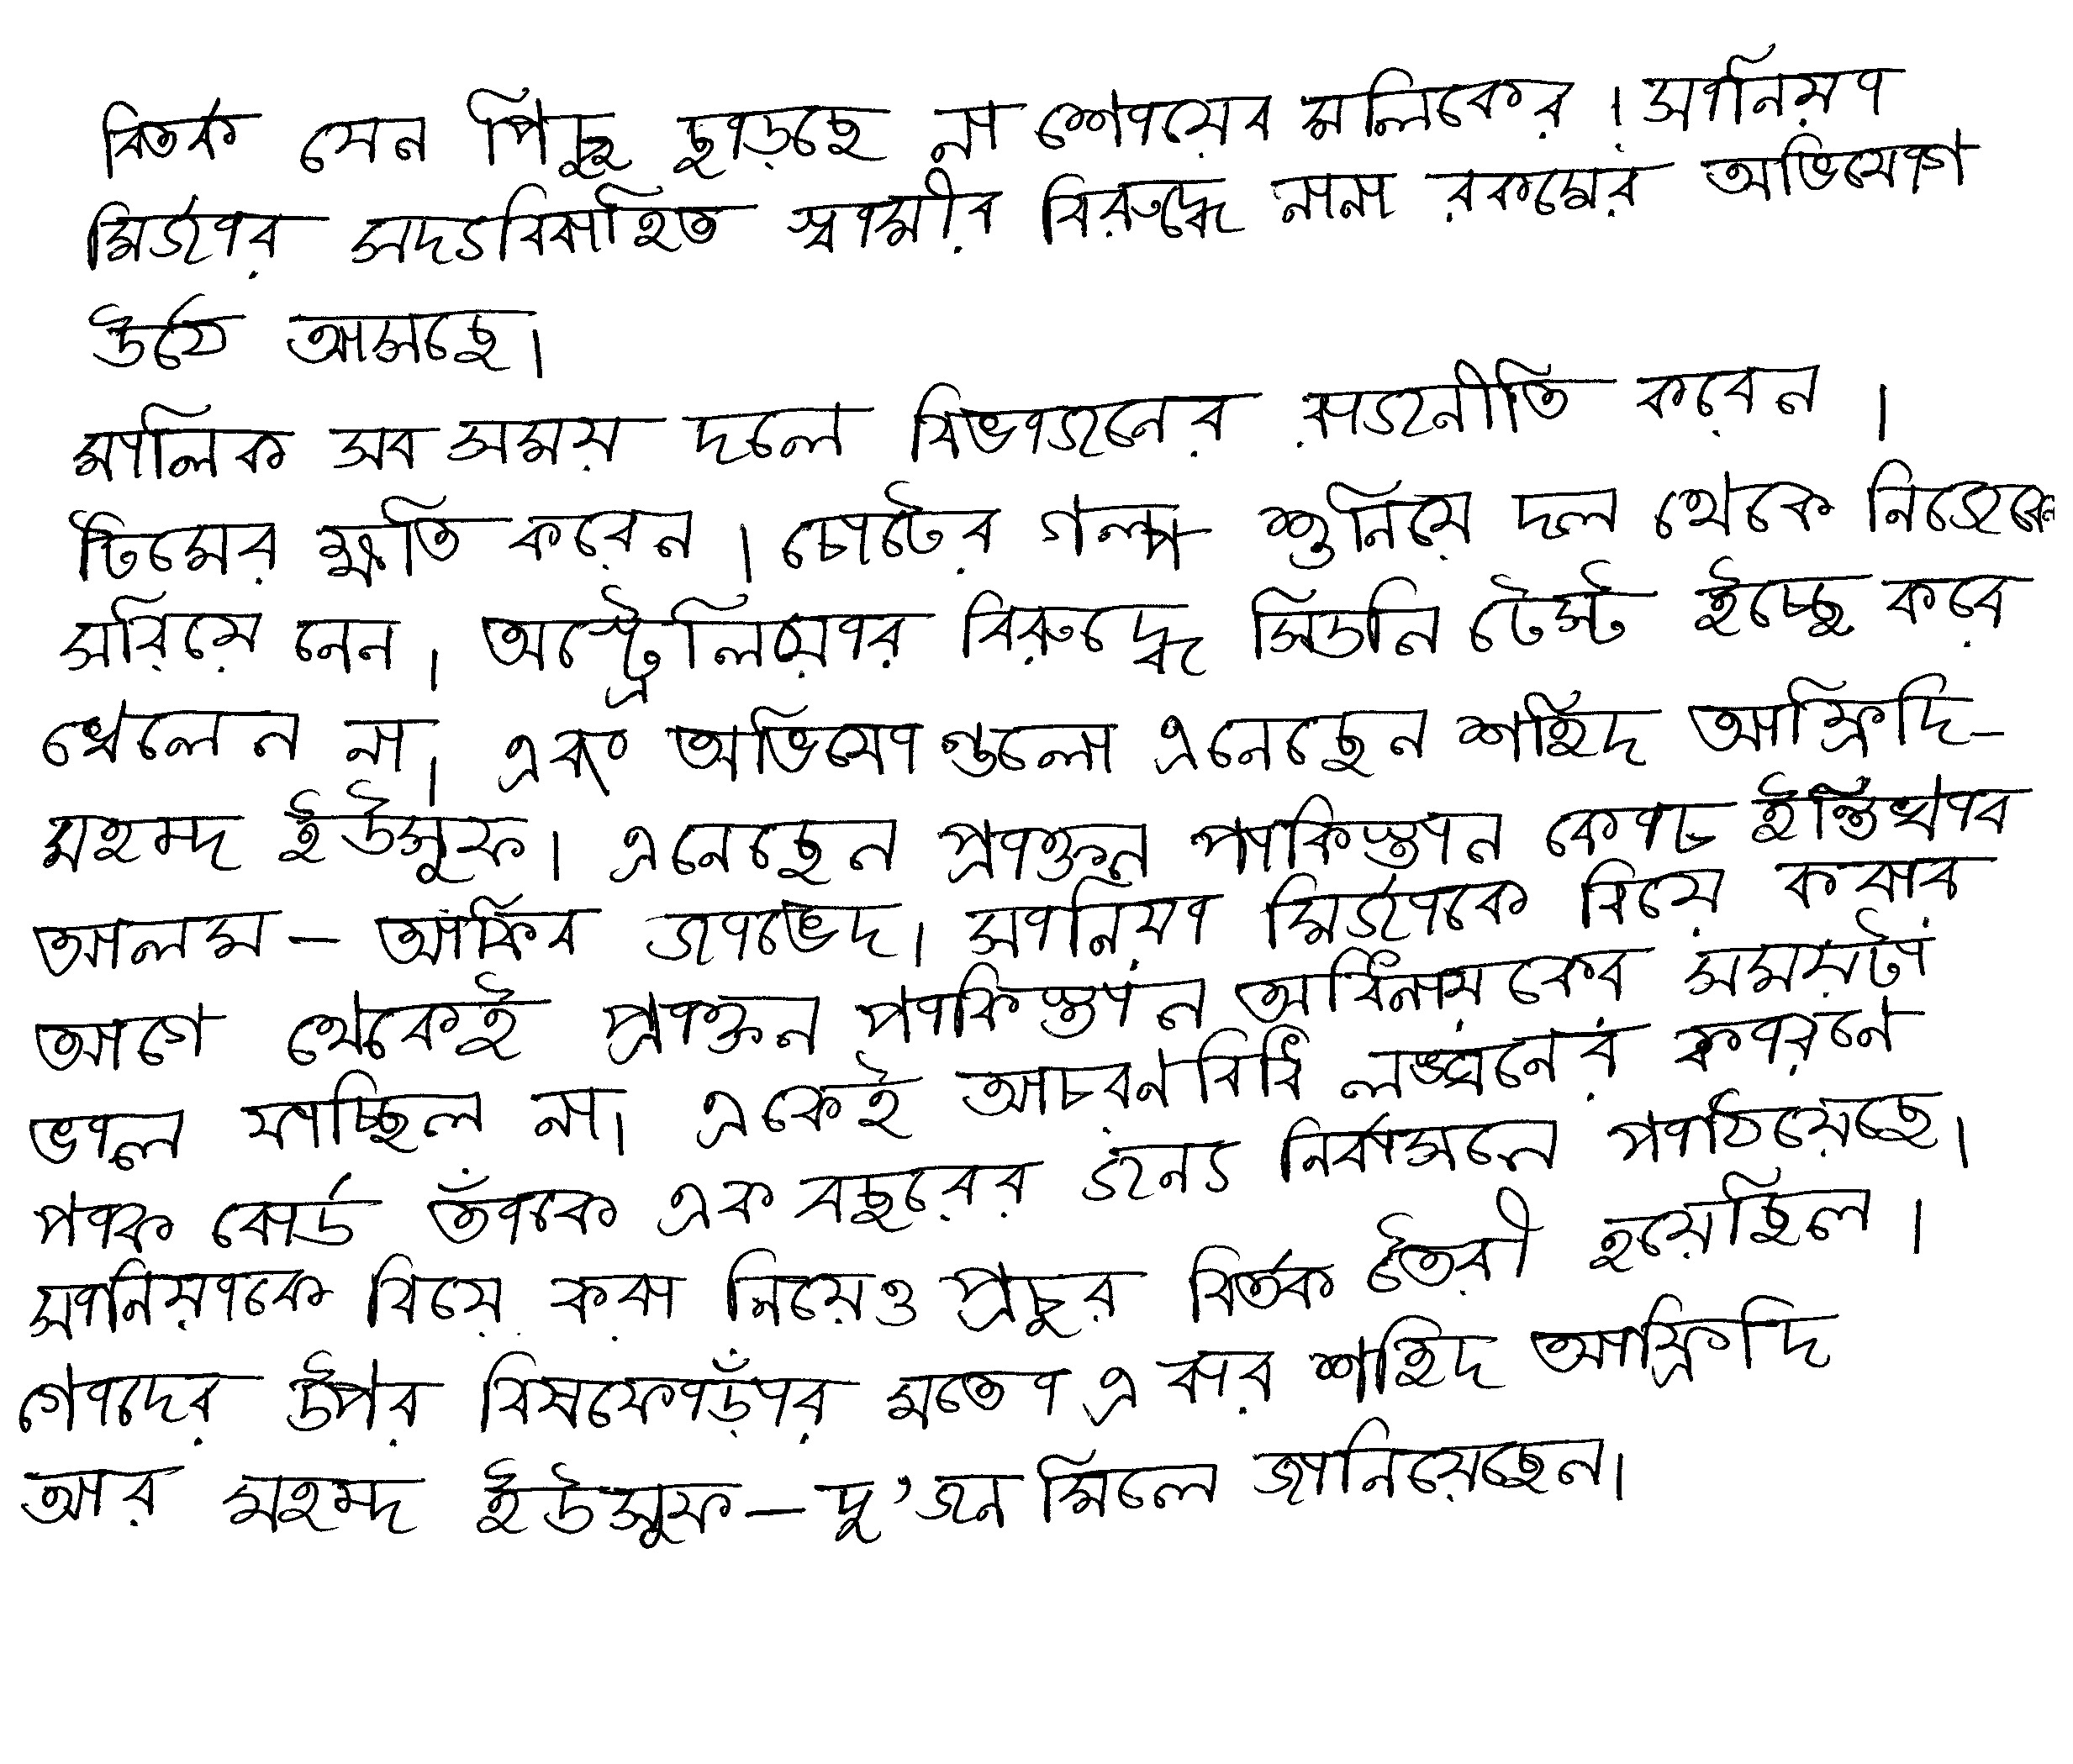 বিতর্ক যেন পিছু ছাড়ছে না শোয়েব মালিকের। সানিয়া
মির্জার সদ্যবিবাহিত স্বামীর বিরুদ্ধে নানা রকমের অভিযোগ
উঠে আসছে।
মালিক সব সময় দলে বিভাজনের রাজনীতি করেন।
টিমের ক্ষতি করেন। চোটের গল্প শুনিয়ে দল থেকে নিজেকে
সরিয়ে নেন। অস্ট্রেলিয়ার বিরুদ্ধে সিডনি টেস্ট ইচ্ছে করে
খেলেন না। এবং অভিযোগুলো এনেছেন শাহিদ আফ্রিদি-
মহম্মদ ইউসুফ। এনেছেন প্রাক্তন পাকিস্তান কোচ ইন্তিখাব
আলম - আকিব জাভেদ। সানিয়া মির্জাকে বিয়ে করার
আগে থেকেই প্রাক্তন পাকিস্তান অধিনায়কের সময়টা
ভাল যাচ্ছিল না। একেই আচরণবিধি লঙ্ঘনের কারনে
পাক বোর্ড তাঁকে এক বছরের জন্য নির্বাসনে পাঠিয়েছে।
সানিয়াকে বিয়ে করা নিয়েও প্রচুর বিতর্ক তৈরী হয়েছিল।
গোদের উপর বিষফোড়াঁর মতো এ বার শাহিদ আফ্রিদি
আর মহম্মদ ইউসুফ - দু'জন মিলে জানিয়েছেন।